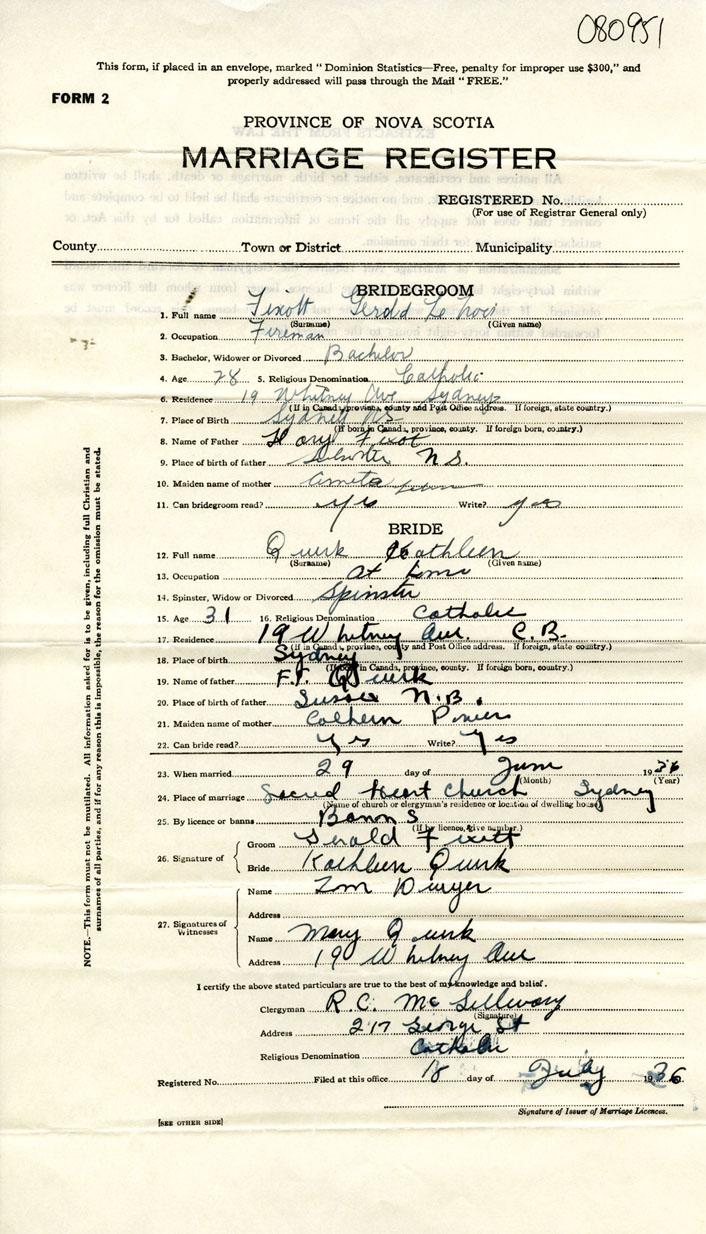 080951
This form, if placed in an envelope, marked "Dominion Statistics—Free, penalty for improper use $300," and
properly addressed will pass through the Mail "FREE."
FORM 2
PROVINCE OF NOVA SCOTIA
MARRIAGE REGISTER
REGISTERED No.
(For use of Registrar General only)
County Town or District Municipality
BRIDEGROOM
1. Full name Fixott Gerald
(Surname) (Given name)
2. Occupation Fireman
3. Bachelor, Widower or Divorced Bachelor
4. Age 28 5. Religious Denomination Catholic
6. Residence 19 Whitney Ave Sydney
(If in Canada, province, county and Post Office address. If foreign, state country.)
7. Place of Birth Sydney NS
(If born in Canada, province, county. If foreign born, country.)
8. Name of Father Fixot
9. Place of birth of father N S.
10. Maiden name of mother
11. Can bridegroom read? yes Write? yes
BRIDE
12. Full name Quirk Kathleen
(Surname) (Given name)
13. Occupation at home
14. Spinster, Widow or Divorced Spinster
15. Age 31 16. Religious Denomination Catholic
17. Residence 19 Whitney Ave. C.B.
(If in Canada, province, county and Post Office address. If foreign, state country.)
18. Place of birth Sydney
(If born in Canada, province, county. If foreign born, country.)
19. Name of father F.F. Quirk
20. Place of birth of father Sussex N.B.
21. Maiden name of mother
22. Can bride read? Yes Write? Yes
23. When married 29 day of June 1936
(Month) (Year)
24. Place of marriage Sacred Heart Church Sydney
(Name of church or clergyman's residence or location of dwelling house)
25. By licence or banns Banns
(If by licence, give number.)
26. Signature of
Groom Gerald Fixott
Bride Kathleen Quirk
27. Signatures of Witnesses
Name Tom Dwyer
Address
Name Mary Quirk
Address 19 Whitney Ave
I certify the above stated particulars are true to the best of my knowledge and belief.
Clergyman R.C. McGillivary
(Signature)
Address 217 George St
Religious Denomination Catholic
Registered No. Filed at this office 18 day of July 1936
Signature of Issuer of Marriage Licences.
[SEE OTHER SIDE]
NOTE.—This form must not be mutilated. All information asked for is to be given, including full Christian and
surnames of all parties, and if for any reason this is impossible, the reason for the omission must be stated.